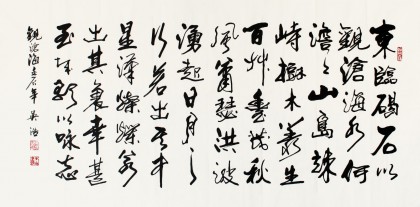 東臨碣石以
觀滄海水何
澹々山島竦
峙樹木叢生
百艸豐茂秋
風蕭瑟洪波
湧起日月之
行若出其中
星漢燦爛若
出其裏幸甚
至哉歌以咏志
觀滄海